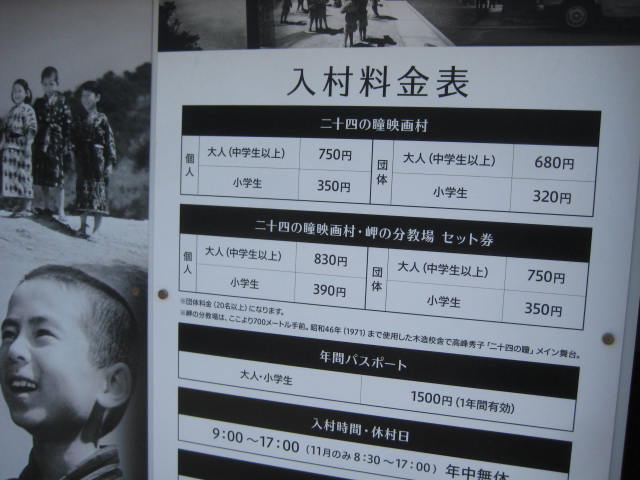 入村料金表
二十四の瞳映画村
個人 大人（中学生以上） 750円 団体 大人（中学生以上） 680円
小学生 350円 小学生 320円
二十四の瞳映画村・岬の分教場 セット券
個人 大人（中学生以上） 830円 団体 大人（中学生以上） 750円
小学生 390円 小学生 350円
※団体料金（20名以上）になります。
※岬の分教場は、ここより700メートル手前。昭和46年（1971）まで使用した木造校舎で高峰秀子「二十四の瞳」メイン舞台。
年間パスポート
大人・小学生 1500円（1年間有効）
入村時間・休村日
9：00～17：00（11月のみ8：30～17：00）年中無休